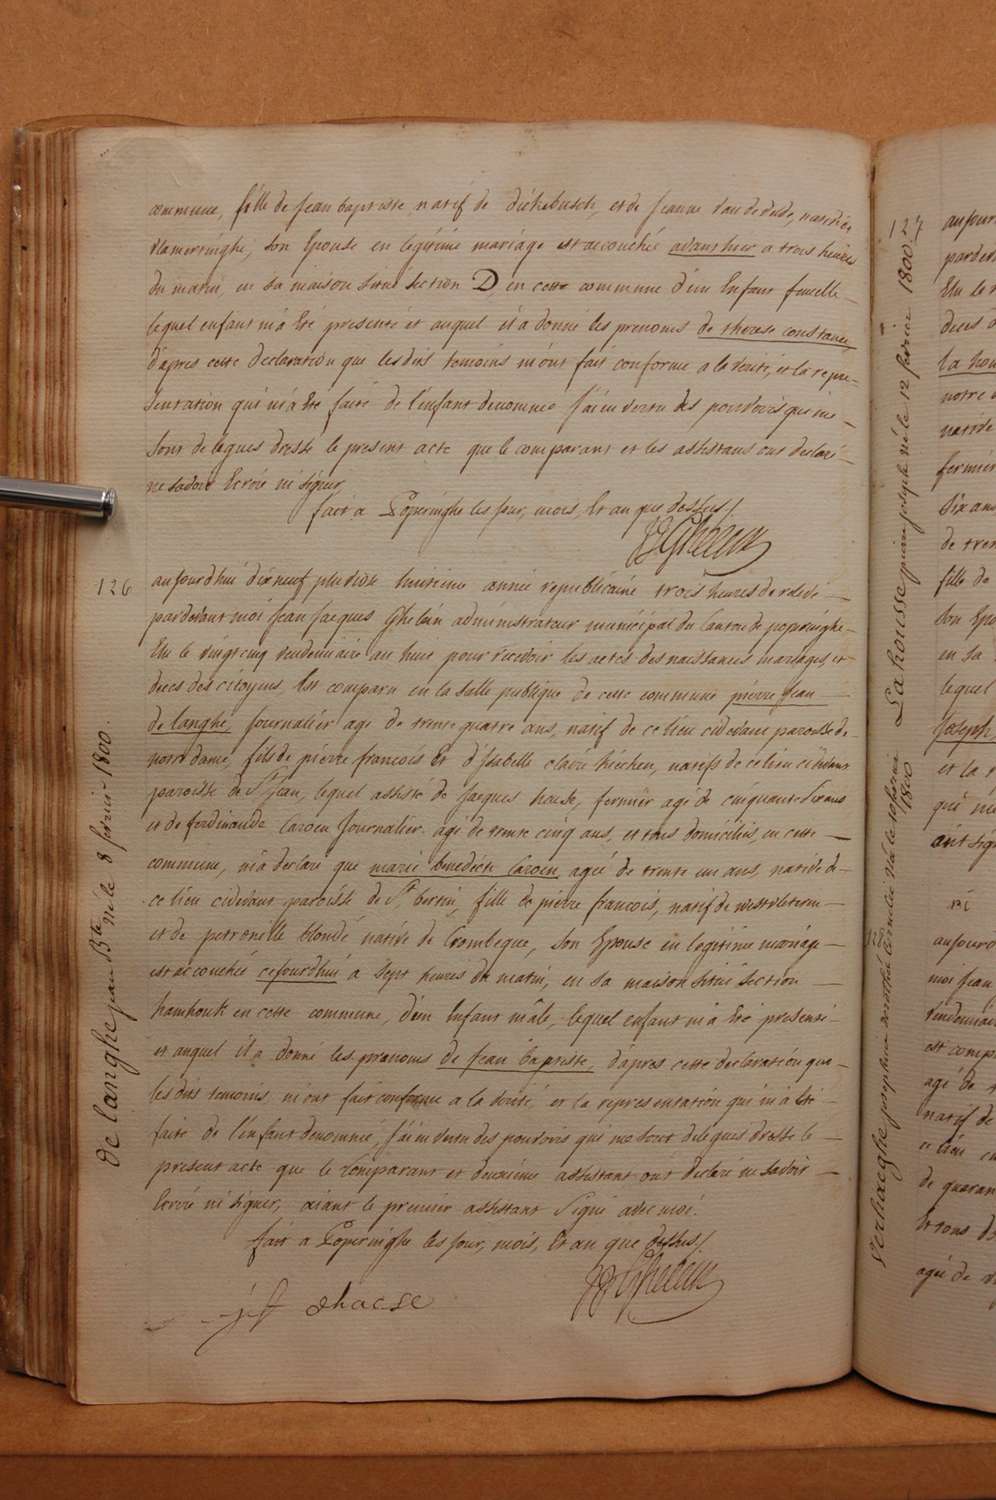 commune, fille de Jean baptiste, natif de dickebusch, et de Jeanne vandevelde, native de
vlamertinghe, son Epouse en legitime mariage est accouchée avant hier a trois heures
du matin, en sa maison sitüé section D, en cette commune d'un Enfant femelle
lequel enfant m'a Eté presenté et auquel il a donné les prenoms de therese constance,
d'apres cette declaration que les dits temoins m'ont fait conforme a la verité, et la repre-
sentation qui m'a Eté faite de l'enfant denommé J'ai en vertu des pouvoirs qui me
sont delegués dressé le present acte que le comparant et les assistans ont declaré
ne savoir Ecrire ni signer
fait a Poperinghe les Jour, mois, Et an que dessus
JJGhelein
126
aujourd'hui dixneuf pluviose huitieme année republicaine trois heures de relevé
pardevant moi Jean Jacques Ghelein administrateur municipal du Canton de poperinghe
Elu le vingt cinq vendemiaire an huit pour recevoir les actes des naissances mariages et
deces des citoyens, Est comparu en la salle publique de cette commune pierre Jean
de langhe, journalier agé de trente quatre ans, natif de ce lieu cidevant paroisse de
notre dame, fils de pierre francois Et d'Isabelle claire natifs de ce lieu cidevant
paroisse de St Jean, lequel assisté de Jacques fermier agé de cinquante ans
et de ferdinande Caroen Journalier agé de trente cinq ans, et tous domiciliés, en cette
commune, m'a declaré que marie benedicte Caroen, agée de trente un ans, native de
ce lieu cidevant paroisse de St bertin, fille de pierre francois, natif de westvleteren
et de petronelle blondé native de Crombeque, son Epouse en legitime mariage
est accouchée cejourd'hui a sept heures du matin, en sa maison sitüé section
hamhouk en cette commune, d'un Enfant mâle, lequel enfant m'a Eté presenté
et auquel il a donné les prenoms de Jean baptiste, d'apres cette declaration que
les dits temoins m'ont fait conforme a la verité, et la representation qui m'a Eté
faite de l'enfant denommé, J'ai en vertu des pouvoirs qui me sont delegués dressé le
present acte que le comparant et deuxieme assistant ont declaré ne savoir
Ecrire ni signer, aiant le premier assistant Signé avec moi.
fait a Poperinghe les Jour, mois, Et an que dessus
JJGhelein
dhaese
de langhe jean Bte né le 8 fevrier 1800.
127
Lahousse pierre joseph né le 12 fevrier 1800
verhaeghe
1800
aujour
pardev
Elu le v
deces d
la hou
notre d
native
fermier
six ans
de tren
fille de
son Epo
en sa
lequel
Joseph,
et la r
qui m
ait sign
aujourd
moi Jean
vendemiaire
est compa
agé de
natif de
ce lieu
de quaran
Et tous d
agée de